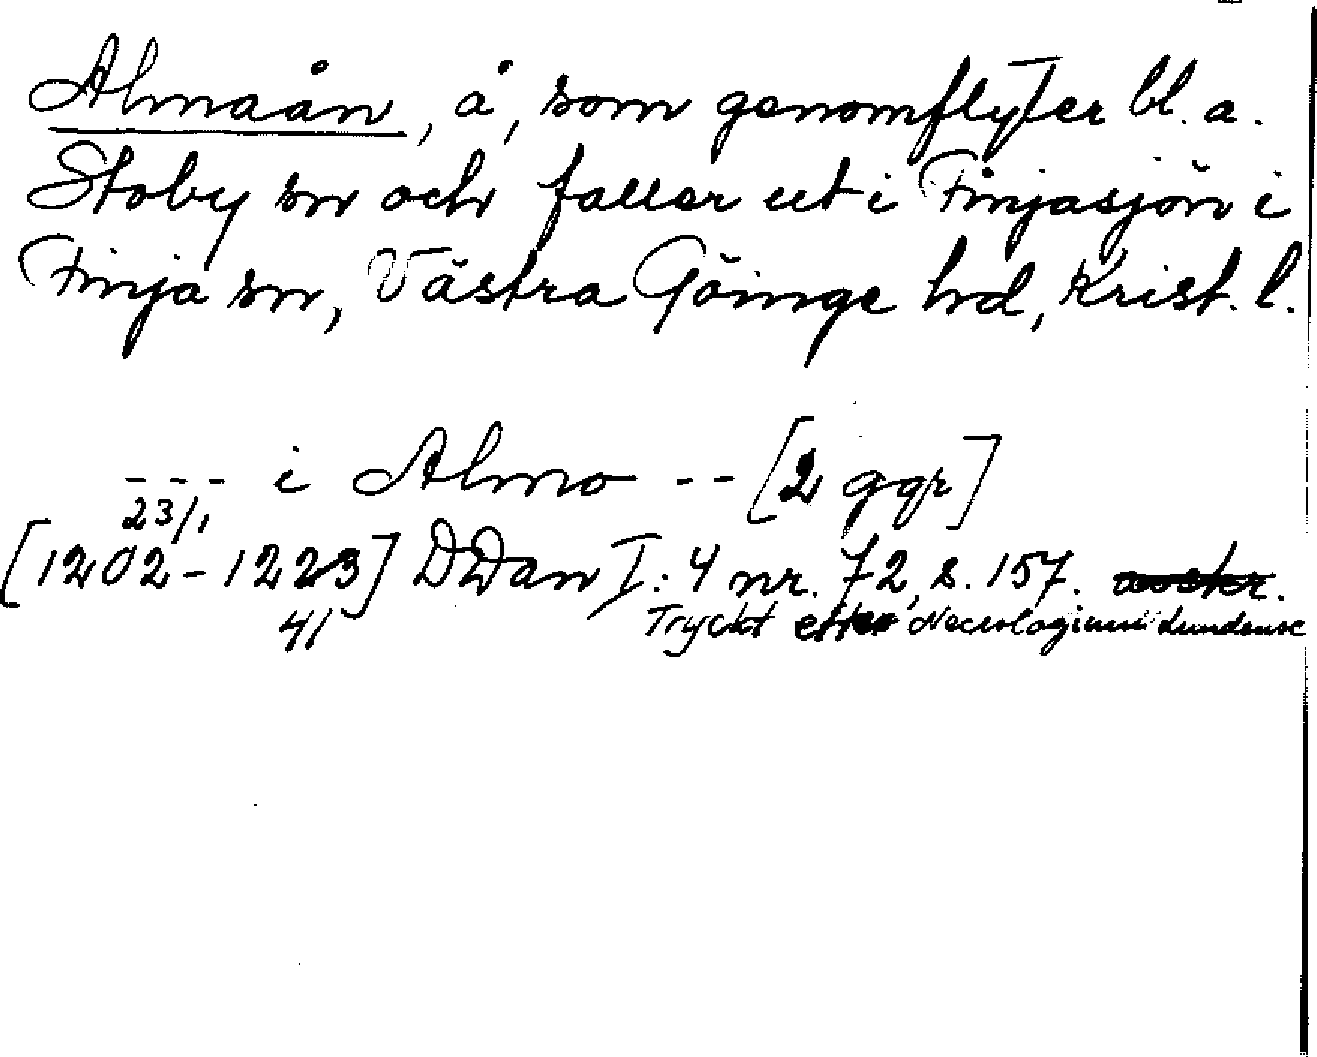 Almaån, å, som genomflyter bl. a.
Stoby sn och faller ut i Finjasjön i
Finja sn, Västra Göinge hd, Krist. l.
--- i Almo -- [2 ggr]
23/1
[1202-1223] DDan I:4 nr. 72, s. 157. avskr.
41 Tryckt efter Necrologium Lundense